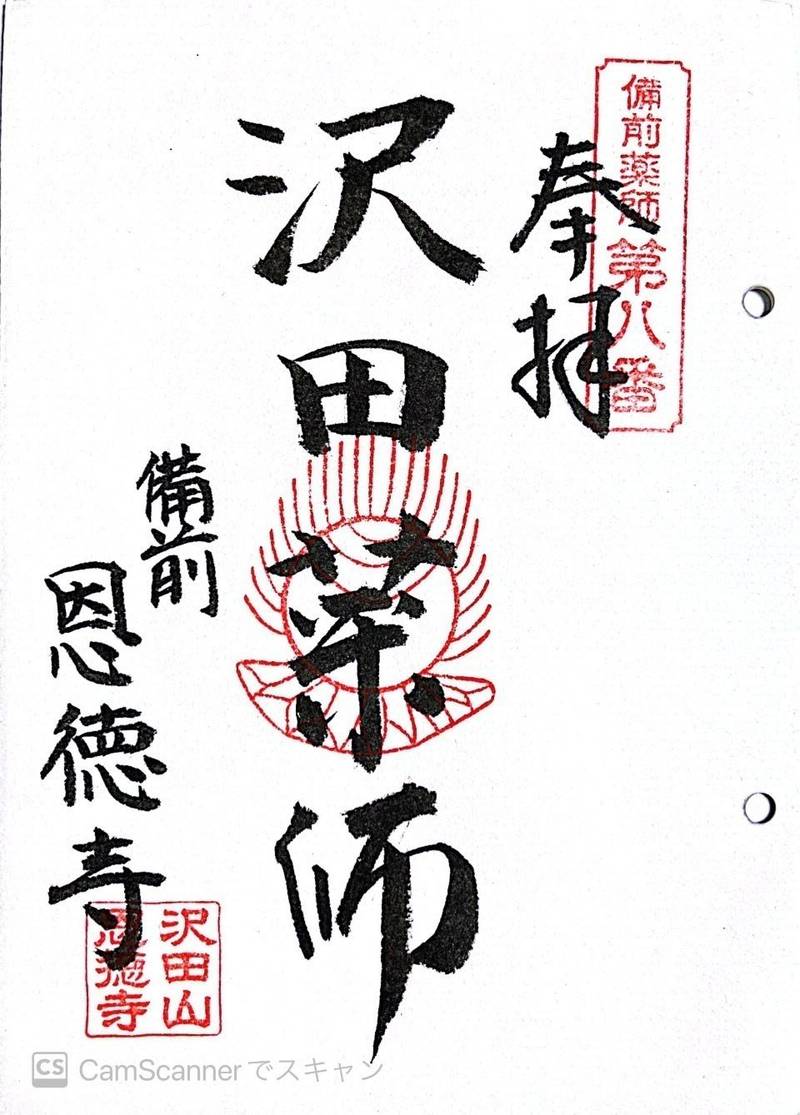 備前薬師第八番
奉拝
沢田薬師
備前
恩徳寺
沢田山
恩徳寺
CS CamScannerでスキャン